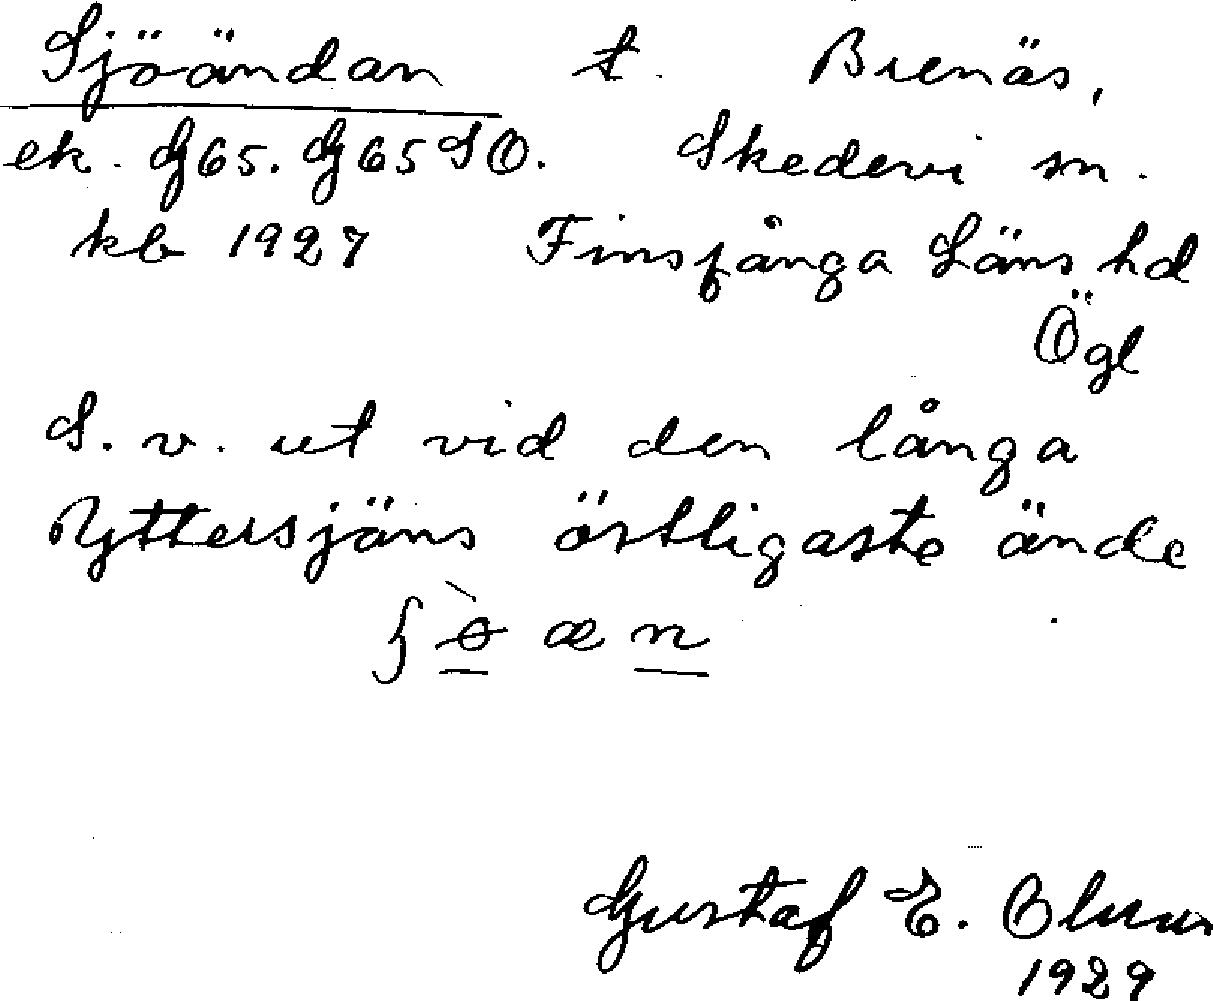 Sjöändan t. Brenäs,
ek. G65. G65SO. Skedevi sn.
kb 1927 Finspånga Läns hd
Ögl
S. v. ut vid den långa
Yttersjöns östligaste ände
ʃɵ̀ æn
Gustaf E. Olsson
1929